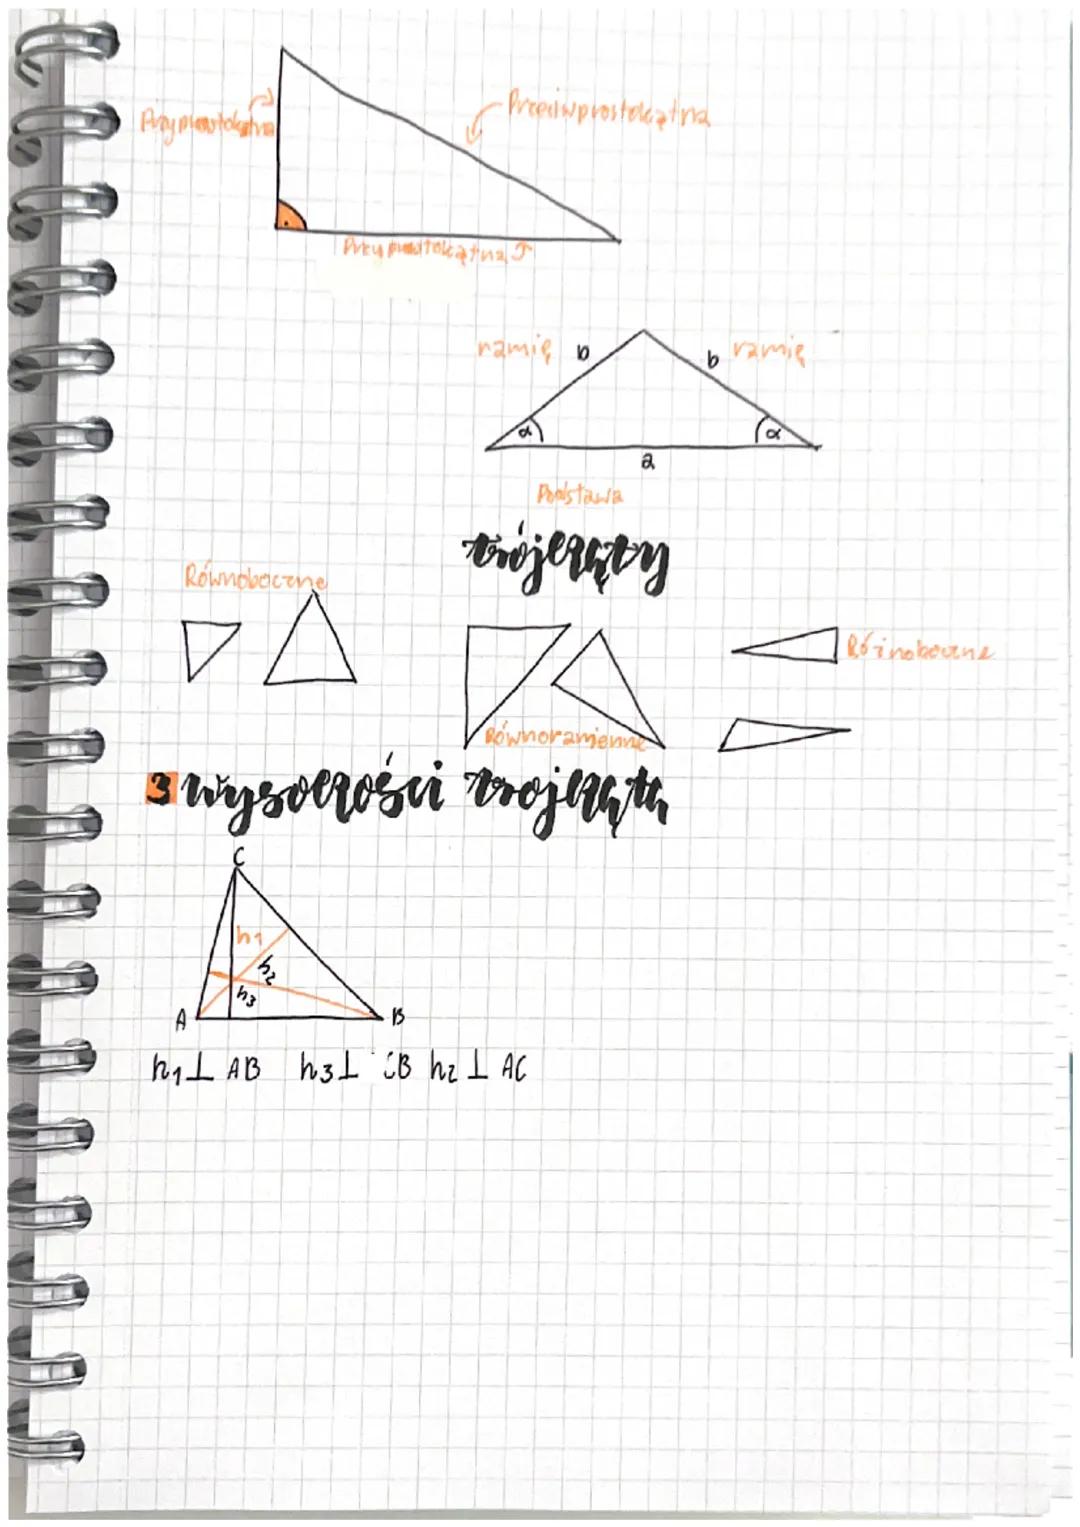 Przyprostokątna
Przeciwprostokątna
Przyprostokątna
ramię b
b ramię
α
α
a
Podstawa
trójkąty
Równoboczne
Różnoboczne
Równoramienne
3 wysokości trojkąta
C
h1
h2
h3
A
B
h1 ⊥ AB h3 ⊥ CB h2 ⊥ AC